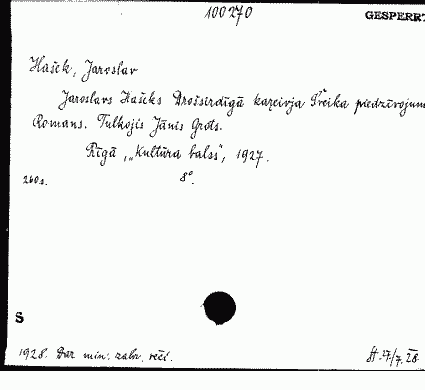 100270
GESPERRT
Hašek, Jaroslav
Jaroslavs Hašeks Drošsirdīgā kareivja Šveika piedzīvojumi
Romans. Tulkojis Jānis Grots.
Rīgā, „Kultūra balss", 1927.
260 s. 8°.
S
1928. Dar. min. zahr. věcí. 27/7.28.